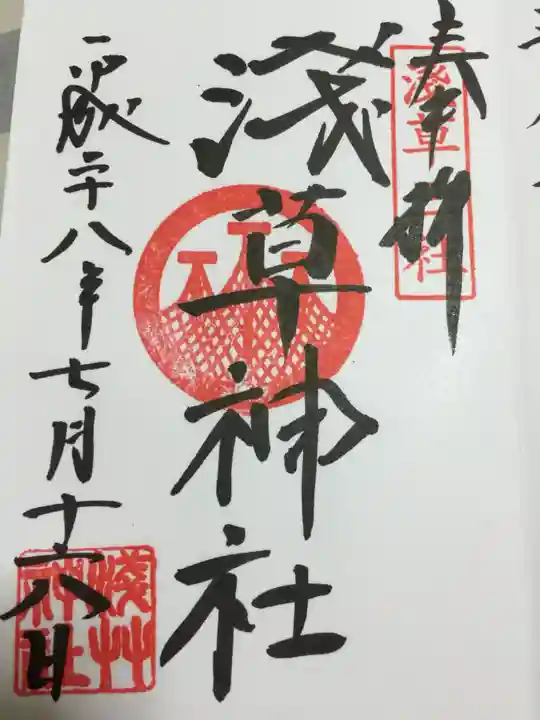 奉拝
淺草神社
淺草神社
平成二十八年七月十六日
淺草神社